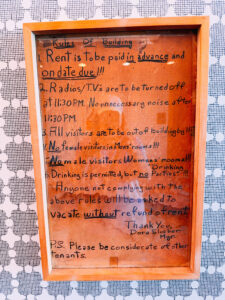 Rules Of Building
1. Rent is to be paid in advance and
on due date!!!
2. Radios/T.V.s are to be turned off
at 11:30 P.M. No unnecessary noise after
11:30 P.M.
3. All visitors are to be out of building by 11
No female visitors in Mens' rooms!!!
No male visitors Womens rooms!!!
Drinking
Drinking is permitted, but no Parties
Anyone not complying with the
above rules will be asked to
vacate without refund of rent.
Thank You,
Dora
Mgr.
P.S. Please be considerate of other
tenants.